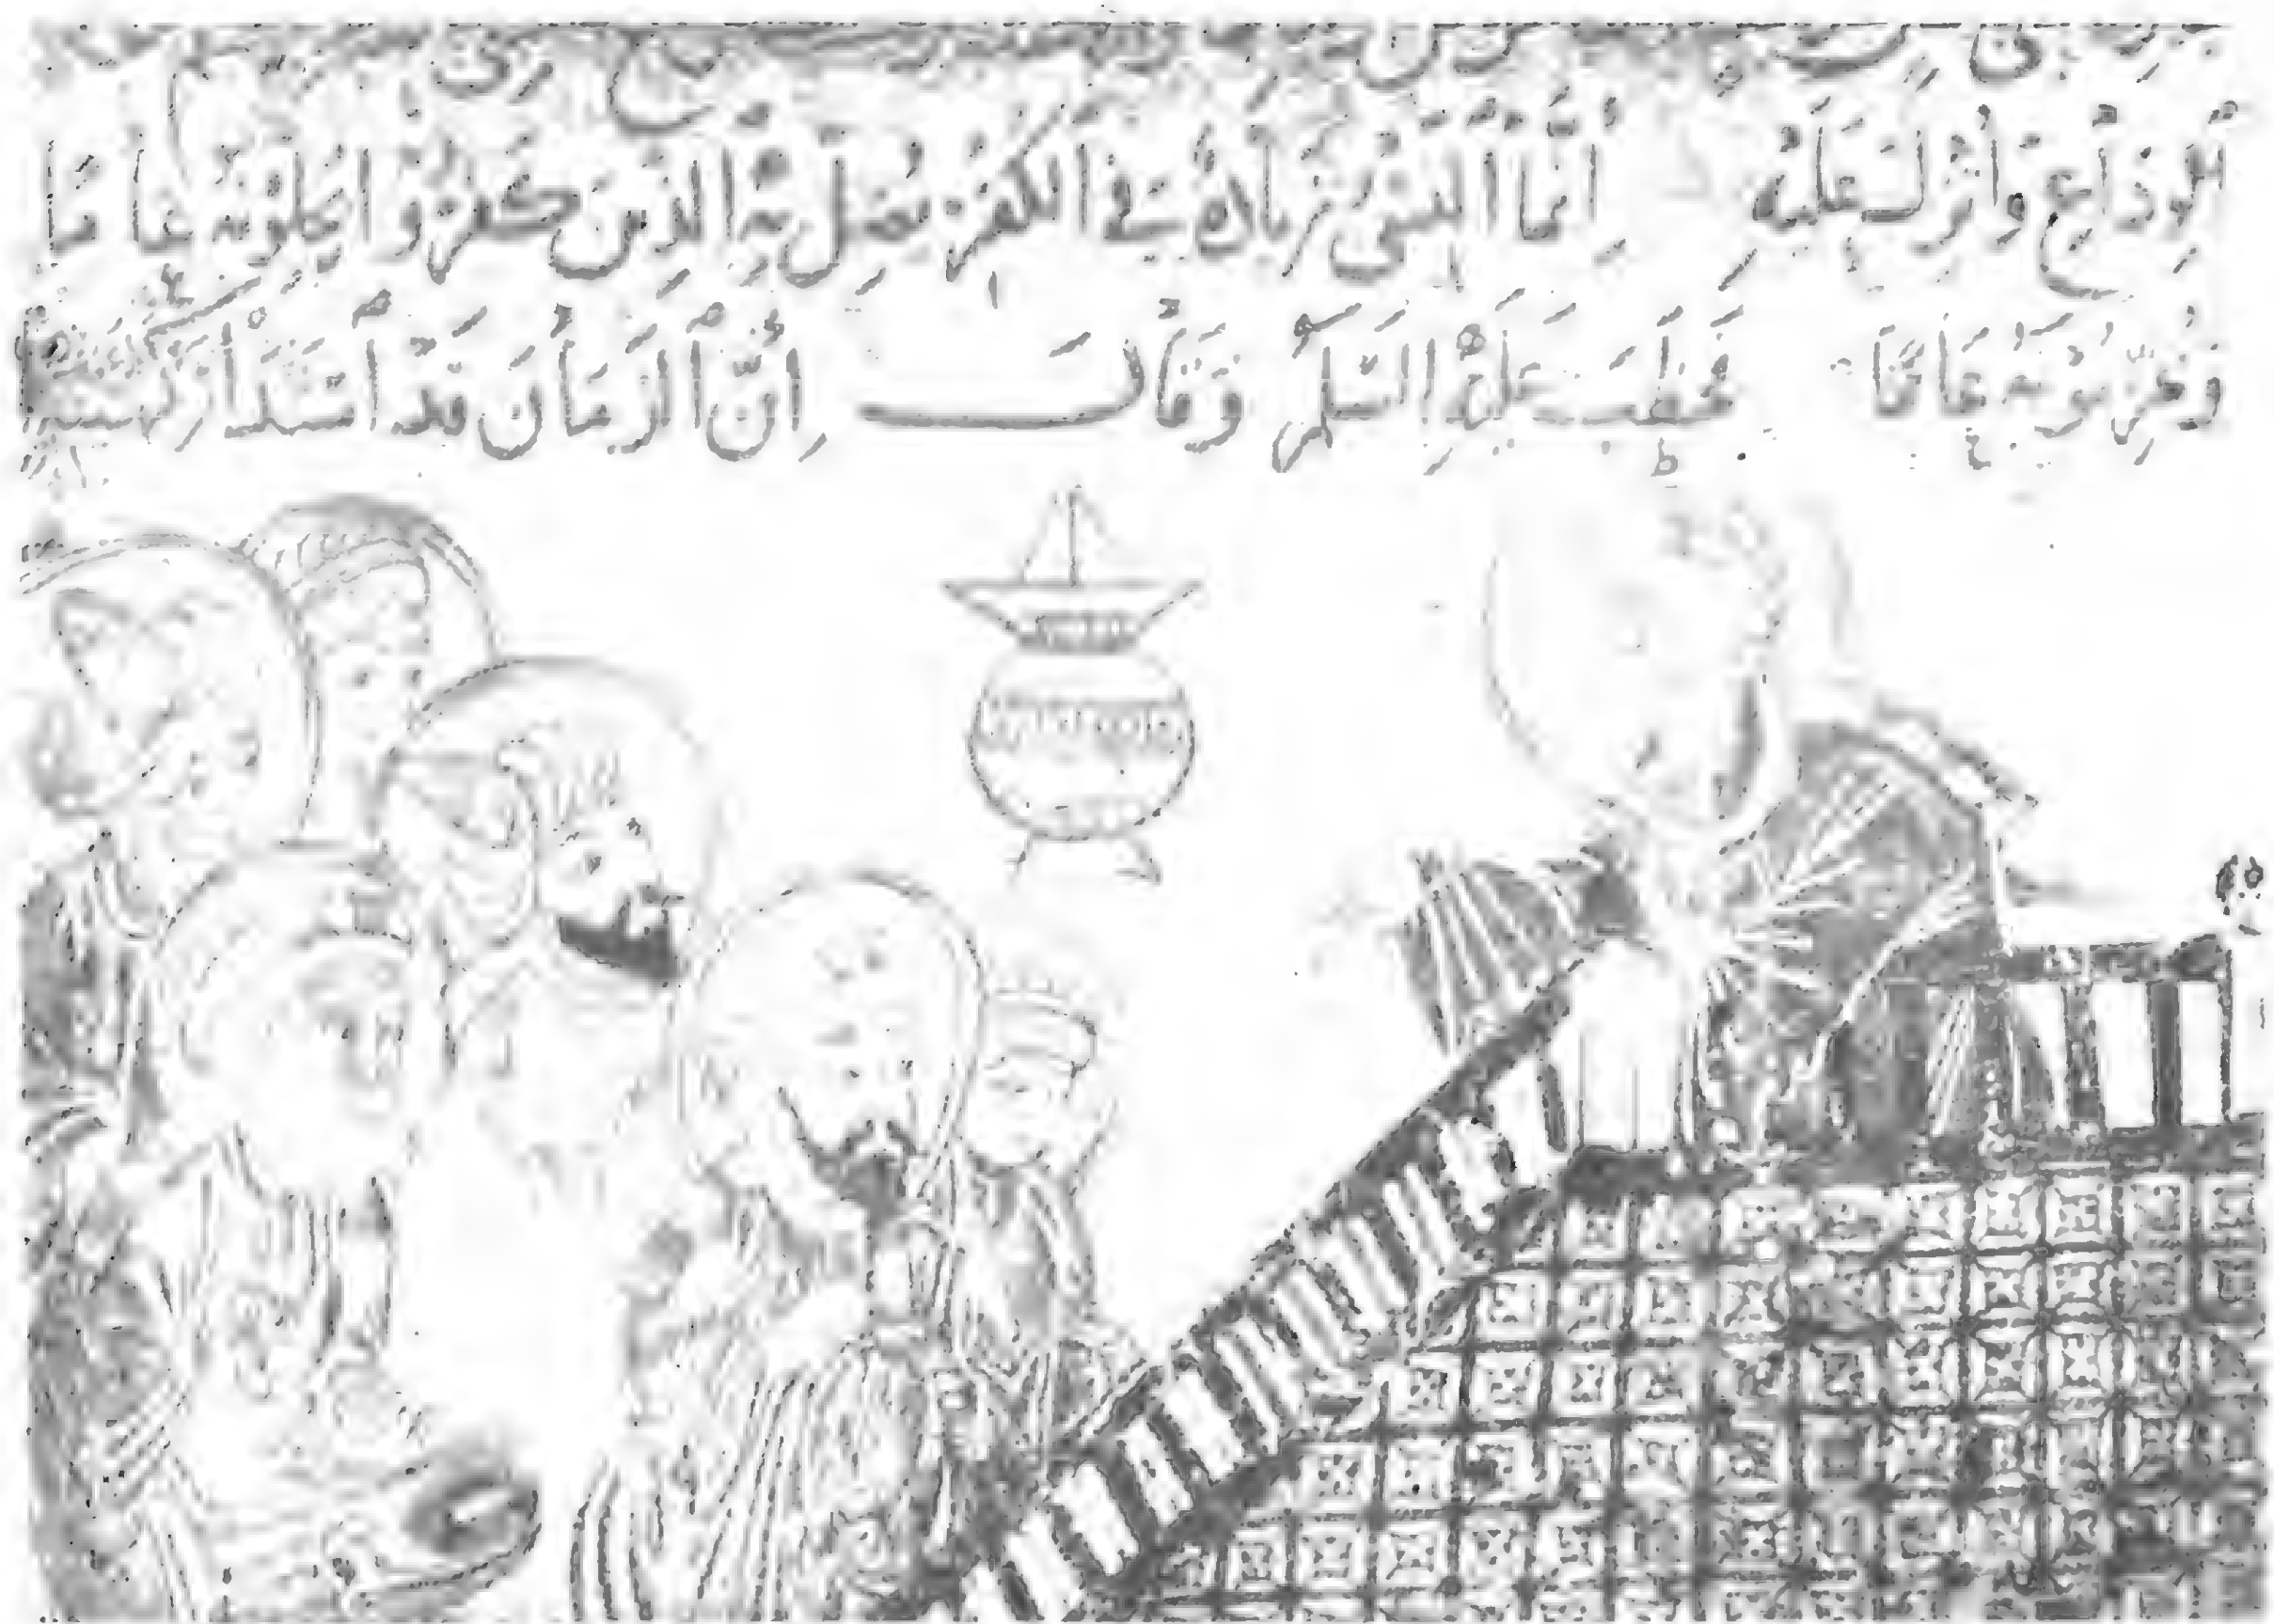 الوَدَاعِ وَأُنْزِلَتْ عَلَيْهِ إِنَّمَا النَّسِيءُ زِيَادَةٌ فِي الْكُفْرِ يُضَلُّ بِهِ الَّذِينَ كَفَرُوا يُحِلُّونَهُ عَامًا
وَيُحَرِّمُونَهُ عَامًا فَخَطَبَ عَلَيْهِ السَّلَمُ وَقَالَ إِنَّ الزَّمَانَ قَدِ اسْتَدَارَ